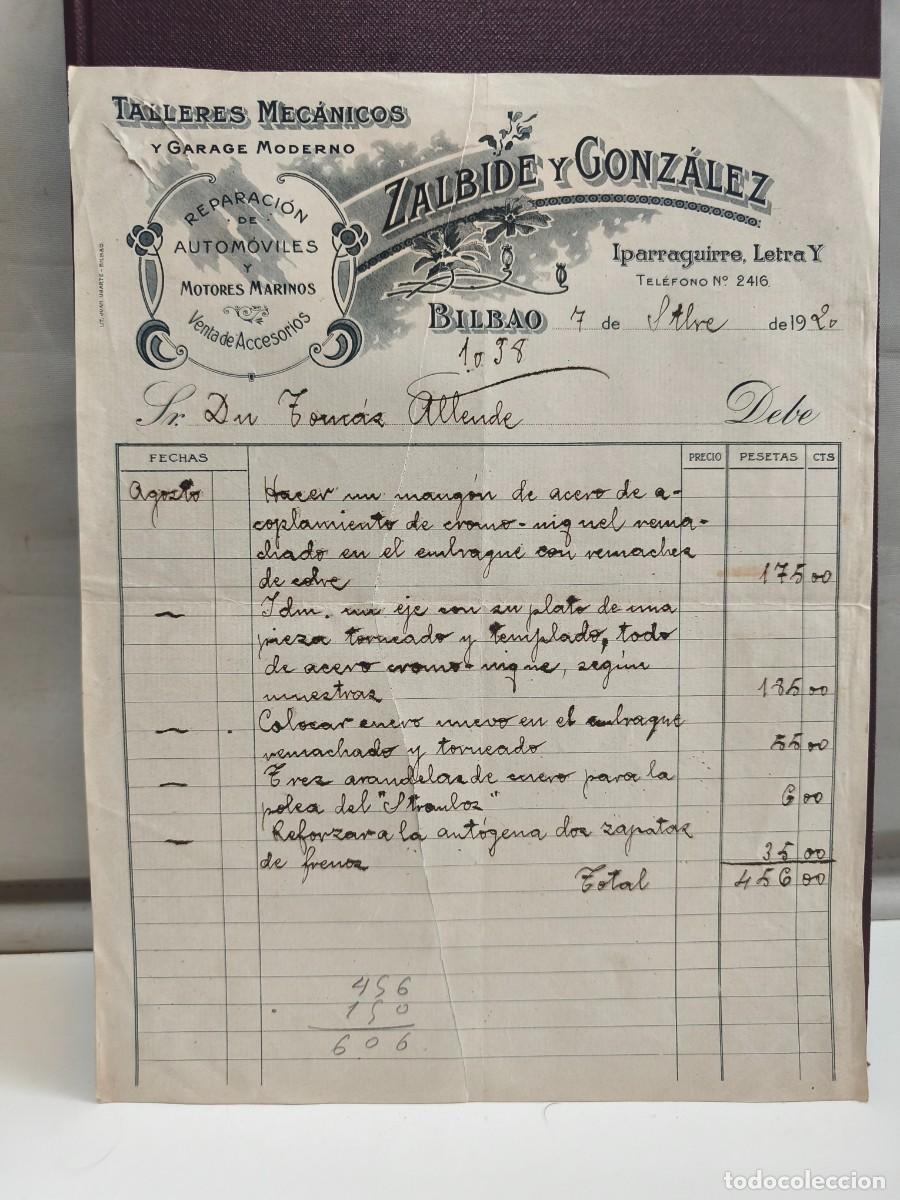 TALLERES MECÁNICOS
Y GARAGE MODERNO
ZALBIDE Y GONZÁLEZ
REPARACIÓN
DE
AUTOMÓVILES
Y
MOTORES MARINOS
Venta de Accesorios
LIT. JUAN UGARTE - BILBAO.
Iparraguirre, Letra Y
TELÉFONO Nº 2416.
BILBAO 7 de Stbre de 1920
1098
Sr. Dn Tomás Allende Debe
FECHAS PRECIO PESETAS CTS
Agosto Hacer un mangón de acero de a-
coplamiento de cromo-niquel rema-
chado en el embrague con remaches
de cobre 175 00
— Idm. un eje con su plato de una
pieza torneado y templado, todo
de acero cromo-nique, según
muestras 185 00
— Colocar cuero nuevo en el embrague
remachado y torneado 55 00
— Tres arandelas de cuero para la
polea del " " 6 00
— Reforzar a la autógena dos zapatas
de frenos 35 00
Total 456 00
456
150
606.
todocoleccion